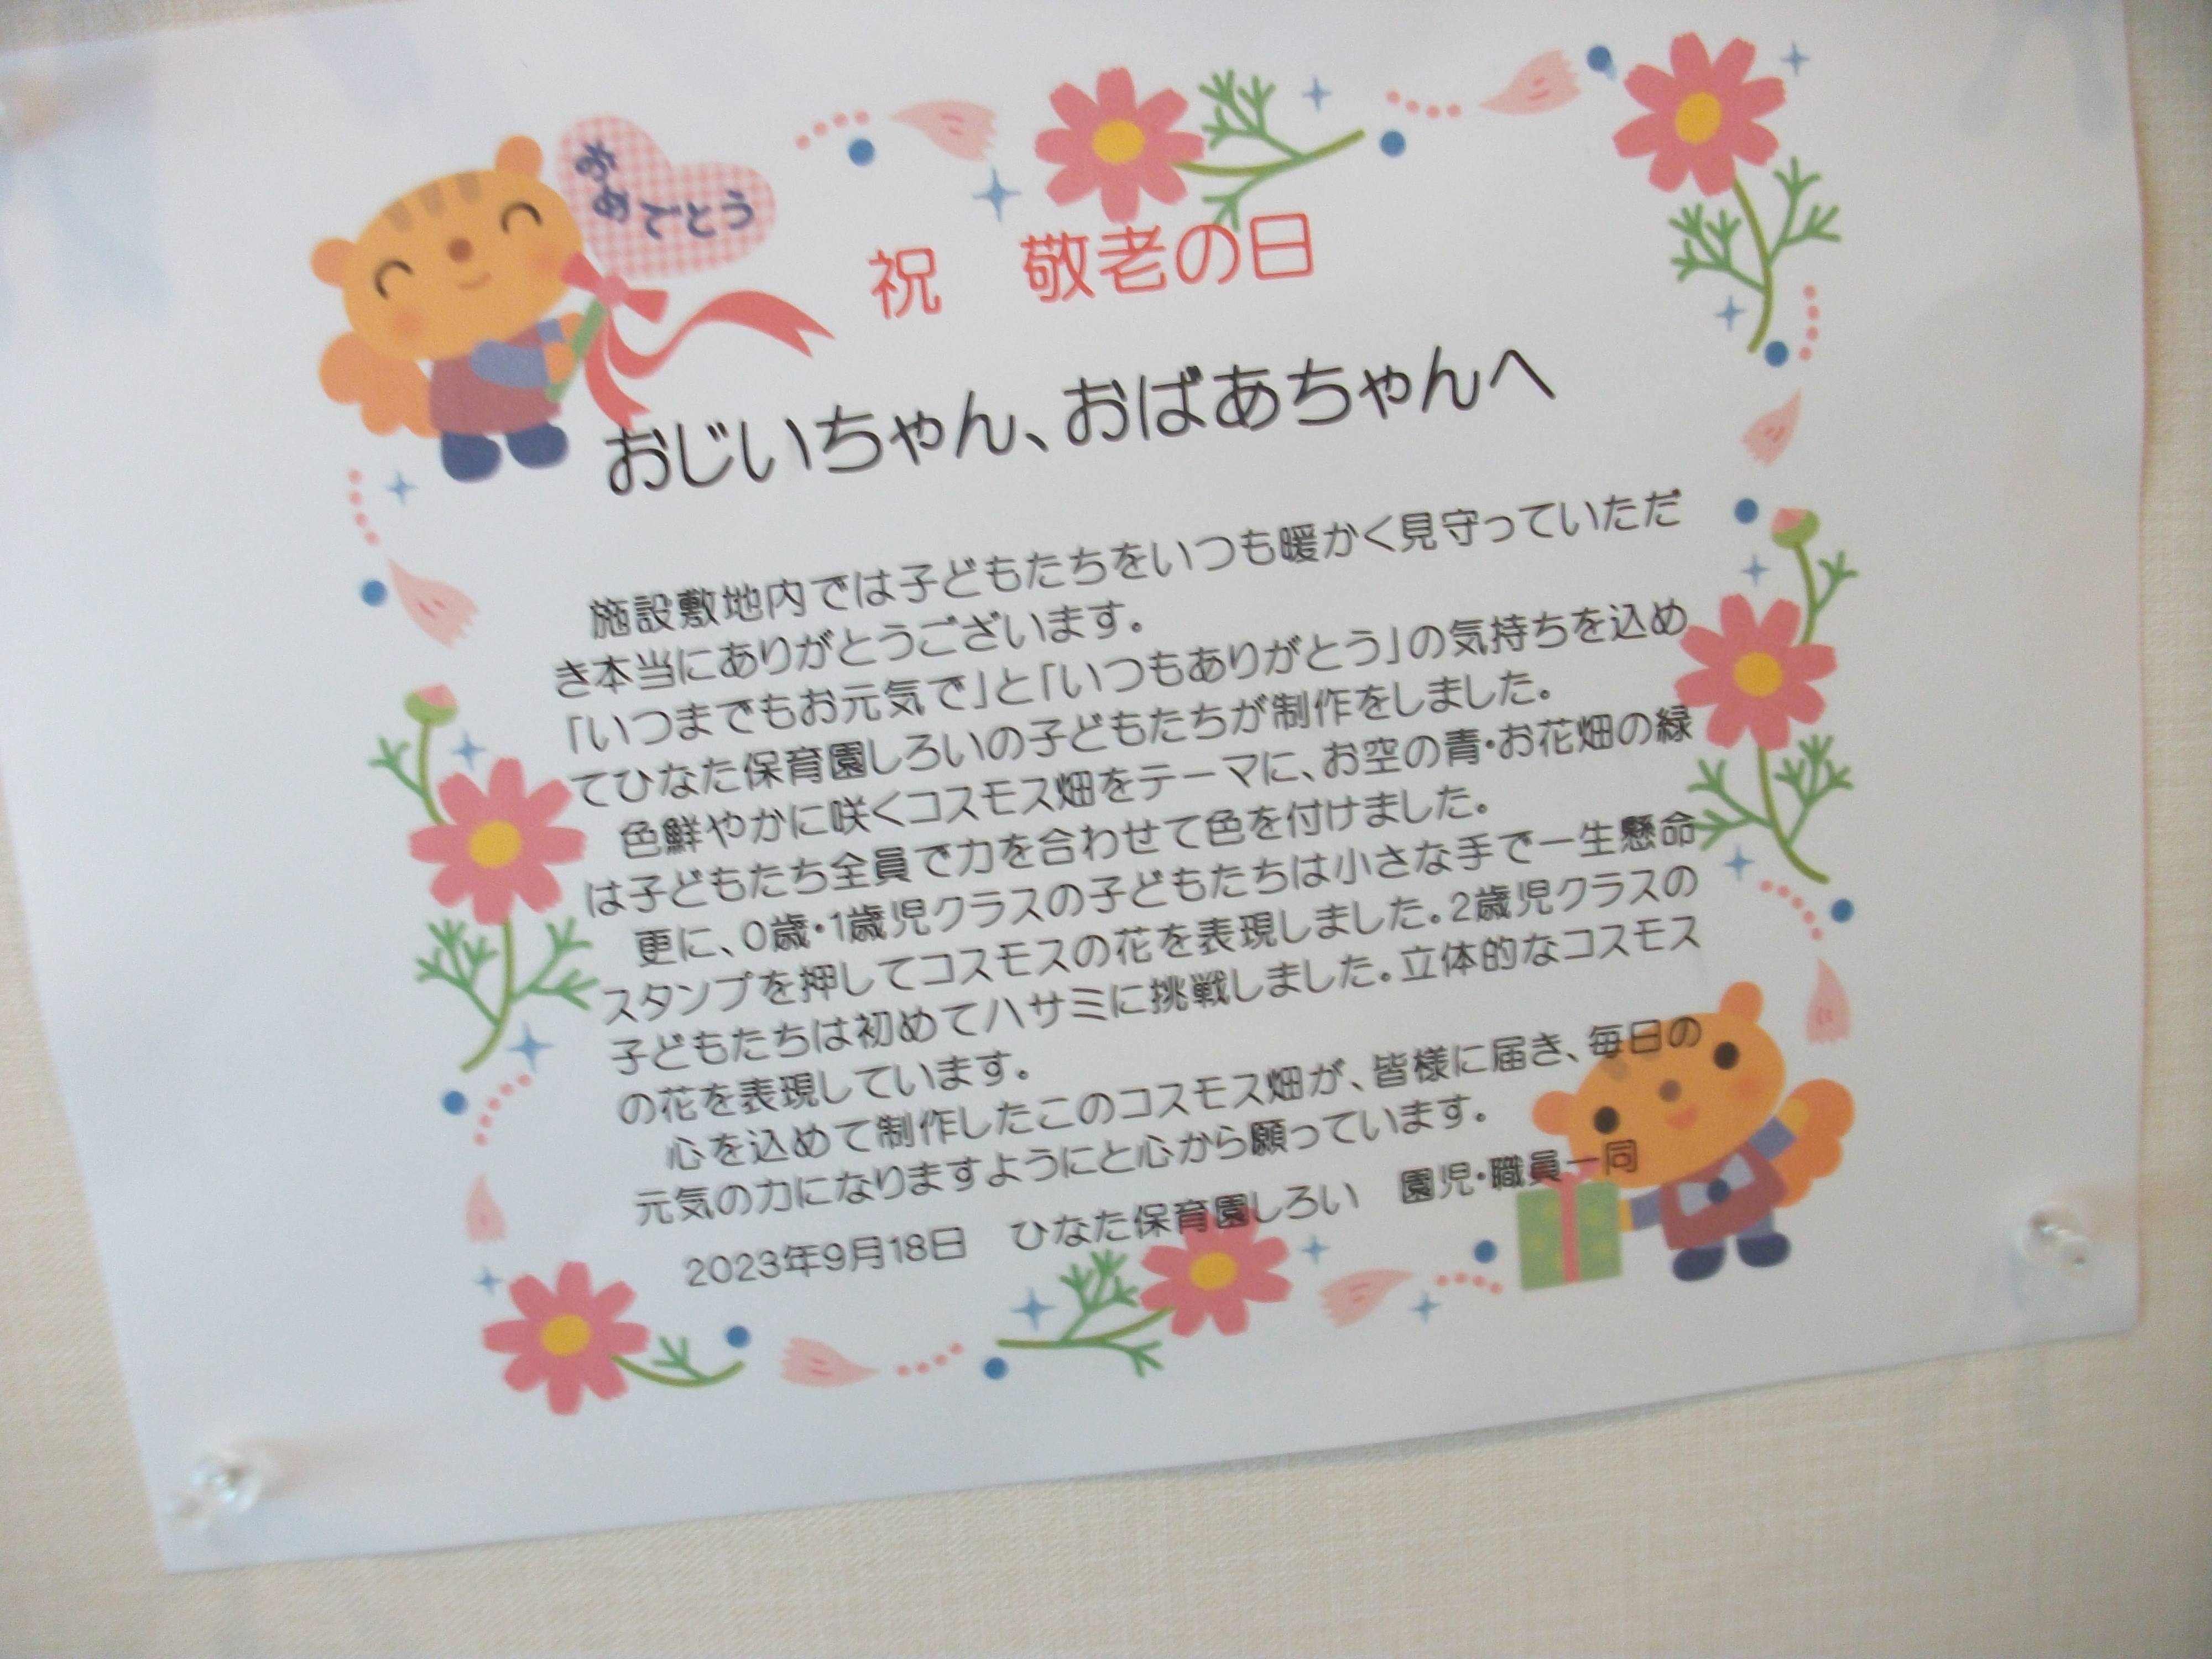 おめでとう
祝　敬老の日
おじいちゃん、おばあちゃんへ
施設敷地内では子どもたちをいつも暖かく見守っていただ
き本当にありがとうございます。
「いつまでもお元気で」と「いつもありがとう」の気持ちを込め
てひなた保育園しろいの子どもたちが制作をしました。
色鮮やかに咲くコスモス畑をテーマに、お空の青・お花畑の緑
は子どもたち全員で力を合わせて色を付けました。
更に、0歳・1歳児クラスの子どもたちは小さな手で一生懸命
スタンプを押してコスモスの花を表現しました。2歳児クラスの
子どもたちは初めてハサミに挑戦しました。立体的なコスモス
の花を表現しています。
心を込めて制作したこのコスモス畑が、皆様に届き、毎日の
元気の力になりますようにと心から願っています。
2023年9月18日　ひなた保育園しろい　園児・職員一同